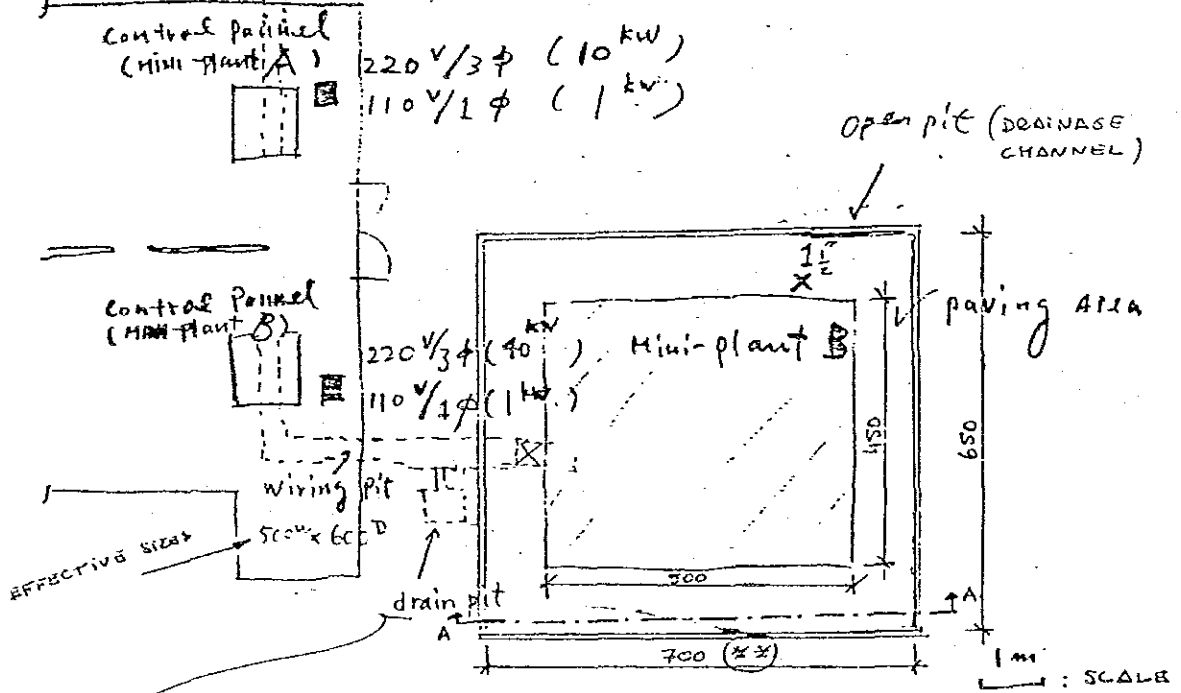 Control Pannel
(Mini-plant A)
220 V/3 φ (10 kW)
110 V/1 φ (1 kW)
Open pit (DRAINAGE
CHANNEL)
1 1/2
X
paving Area
Control Pannel
(Mini-plant B)
220 V/3 φ (40 kW)
110 V/1 φ (1 kW)
Mini-plant B
450
650
wiring pit
EFFECTIVE SIZES
500W x 600D
500
drain pit
A
A
700 (**)
1 m
: SCALE